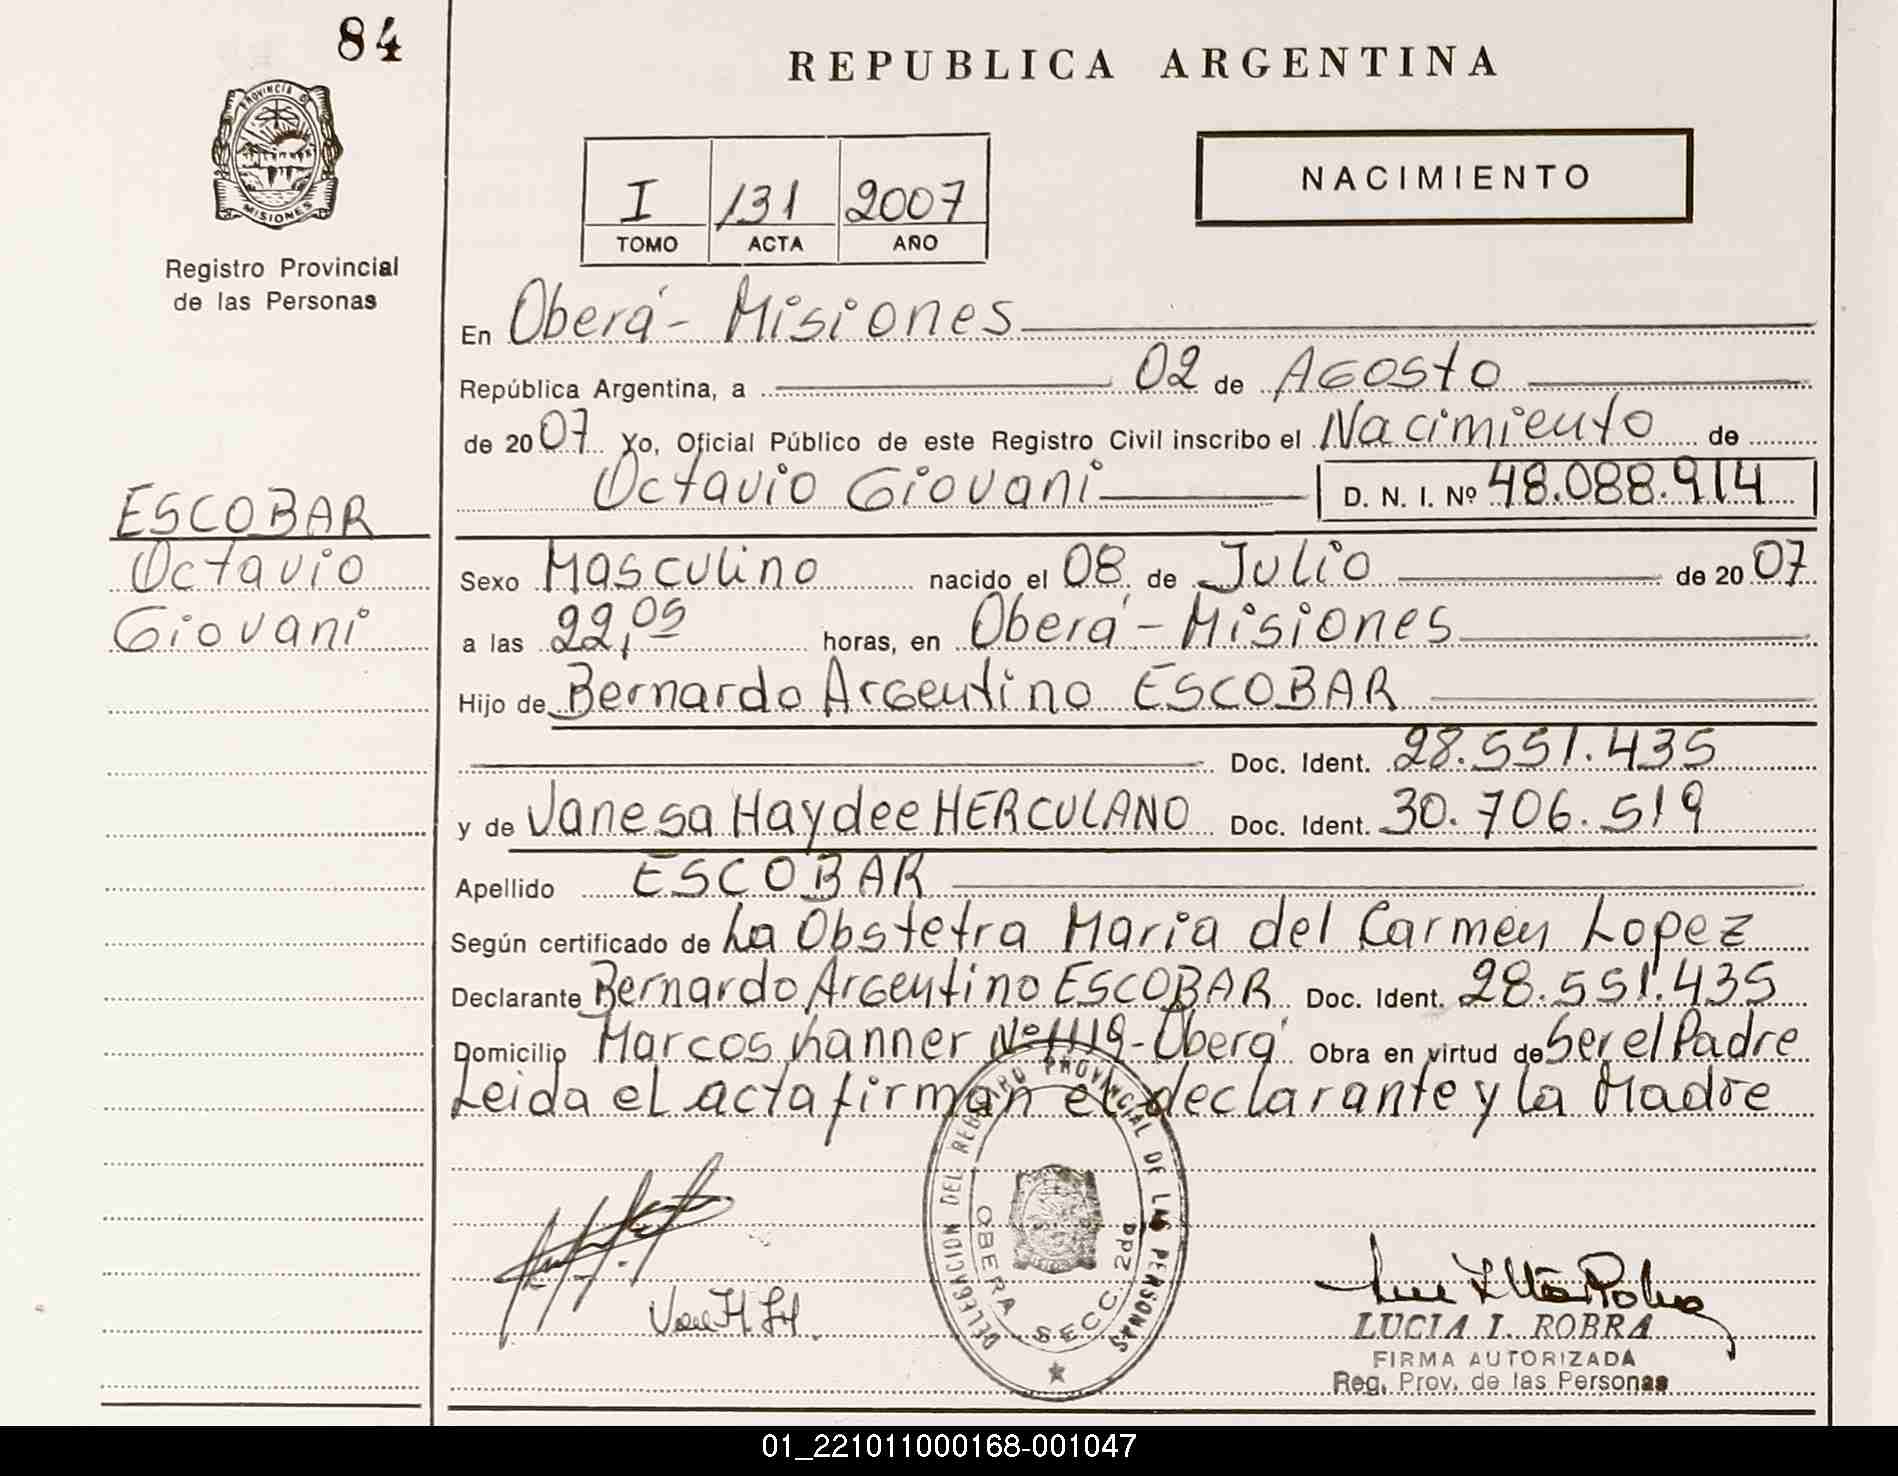 84
PROVINCIA DE
MISIONES
Registro Provincial
de las Personas
ESCOBAR
Octavio
Giovani
REPUBLICA ARGENTINA
I 131 2007
TOMO ACTA AÑO
NACIMIENTO
En Oberá - Misiones
República Argentina, a 02 de Agosto
de 2007 Yo, Oficial Público de este Registro Civil inscribo el Nacimiento de
Octavio Giovani D. N. I. Nº 48.088.914
Sexo Masculino nacido el 08 de Julio de 2007
a las 22,05 horas, en Oberá - Misiones
Hijo de Bernardo Argentino ESCOBAR
Doc. Ident. 28.551.435
y de Vanesa Haydee HERCULANO Doc. Ident. 30.706.519
Apellido ESCOBAR
Según certificado de La Obstetra Maria del Carmen Lopez
Declarante Bernardo Argentino ESCOBAR Doc. Ident. 28.551.435
Domicilio Marcos Kanner Nº 1119 - Oberá Obra en virtud de Ser el Padre
Leida el acta firman el declarante y la Madre
DELEGACION DEL REGISTRO PROVINCIAL DE LAS PERSONAS
OBERA SECC. 2da.
LUCIA I. ROBRA
FIRMA AUTORIZADA
Reg. Prov. de las Personas
01_221011000168-001047